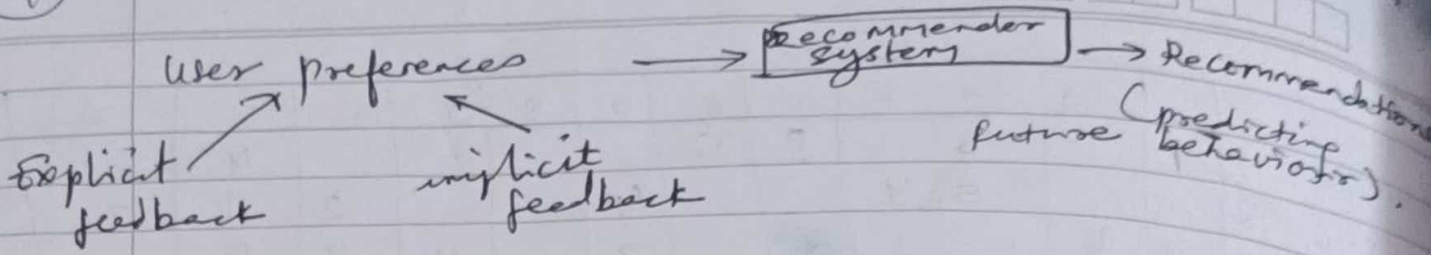 User preferences → Recommender system → Recommendations
(predicting future behaviour).
Explicit feedback
implicit feedback